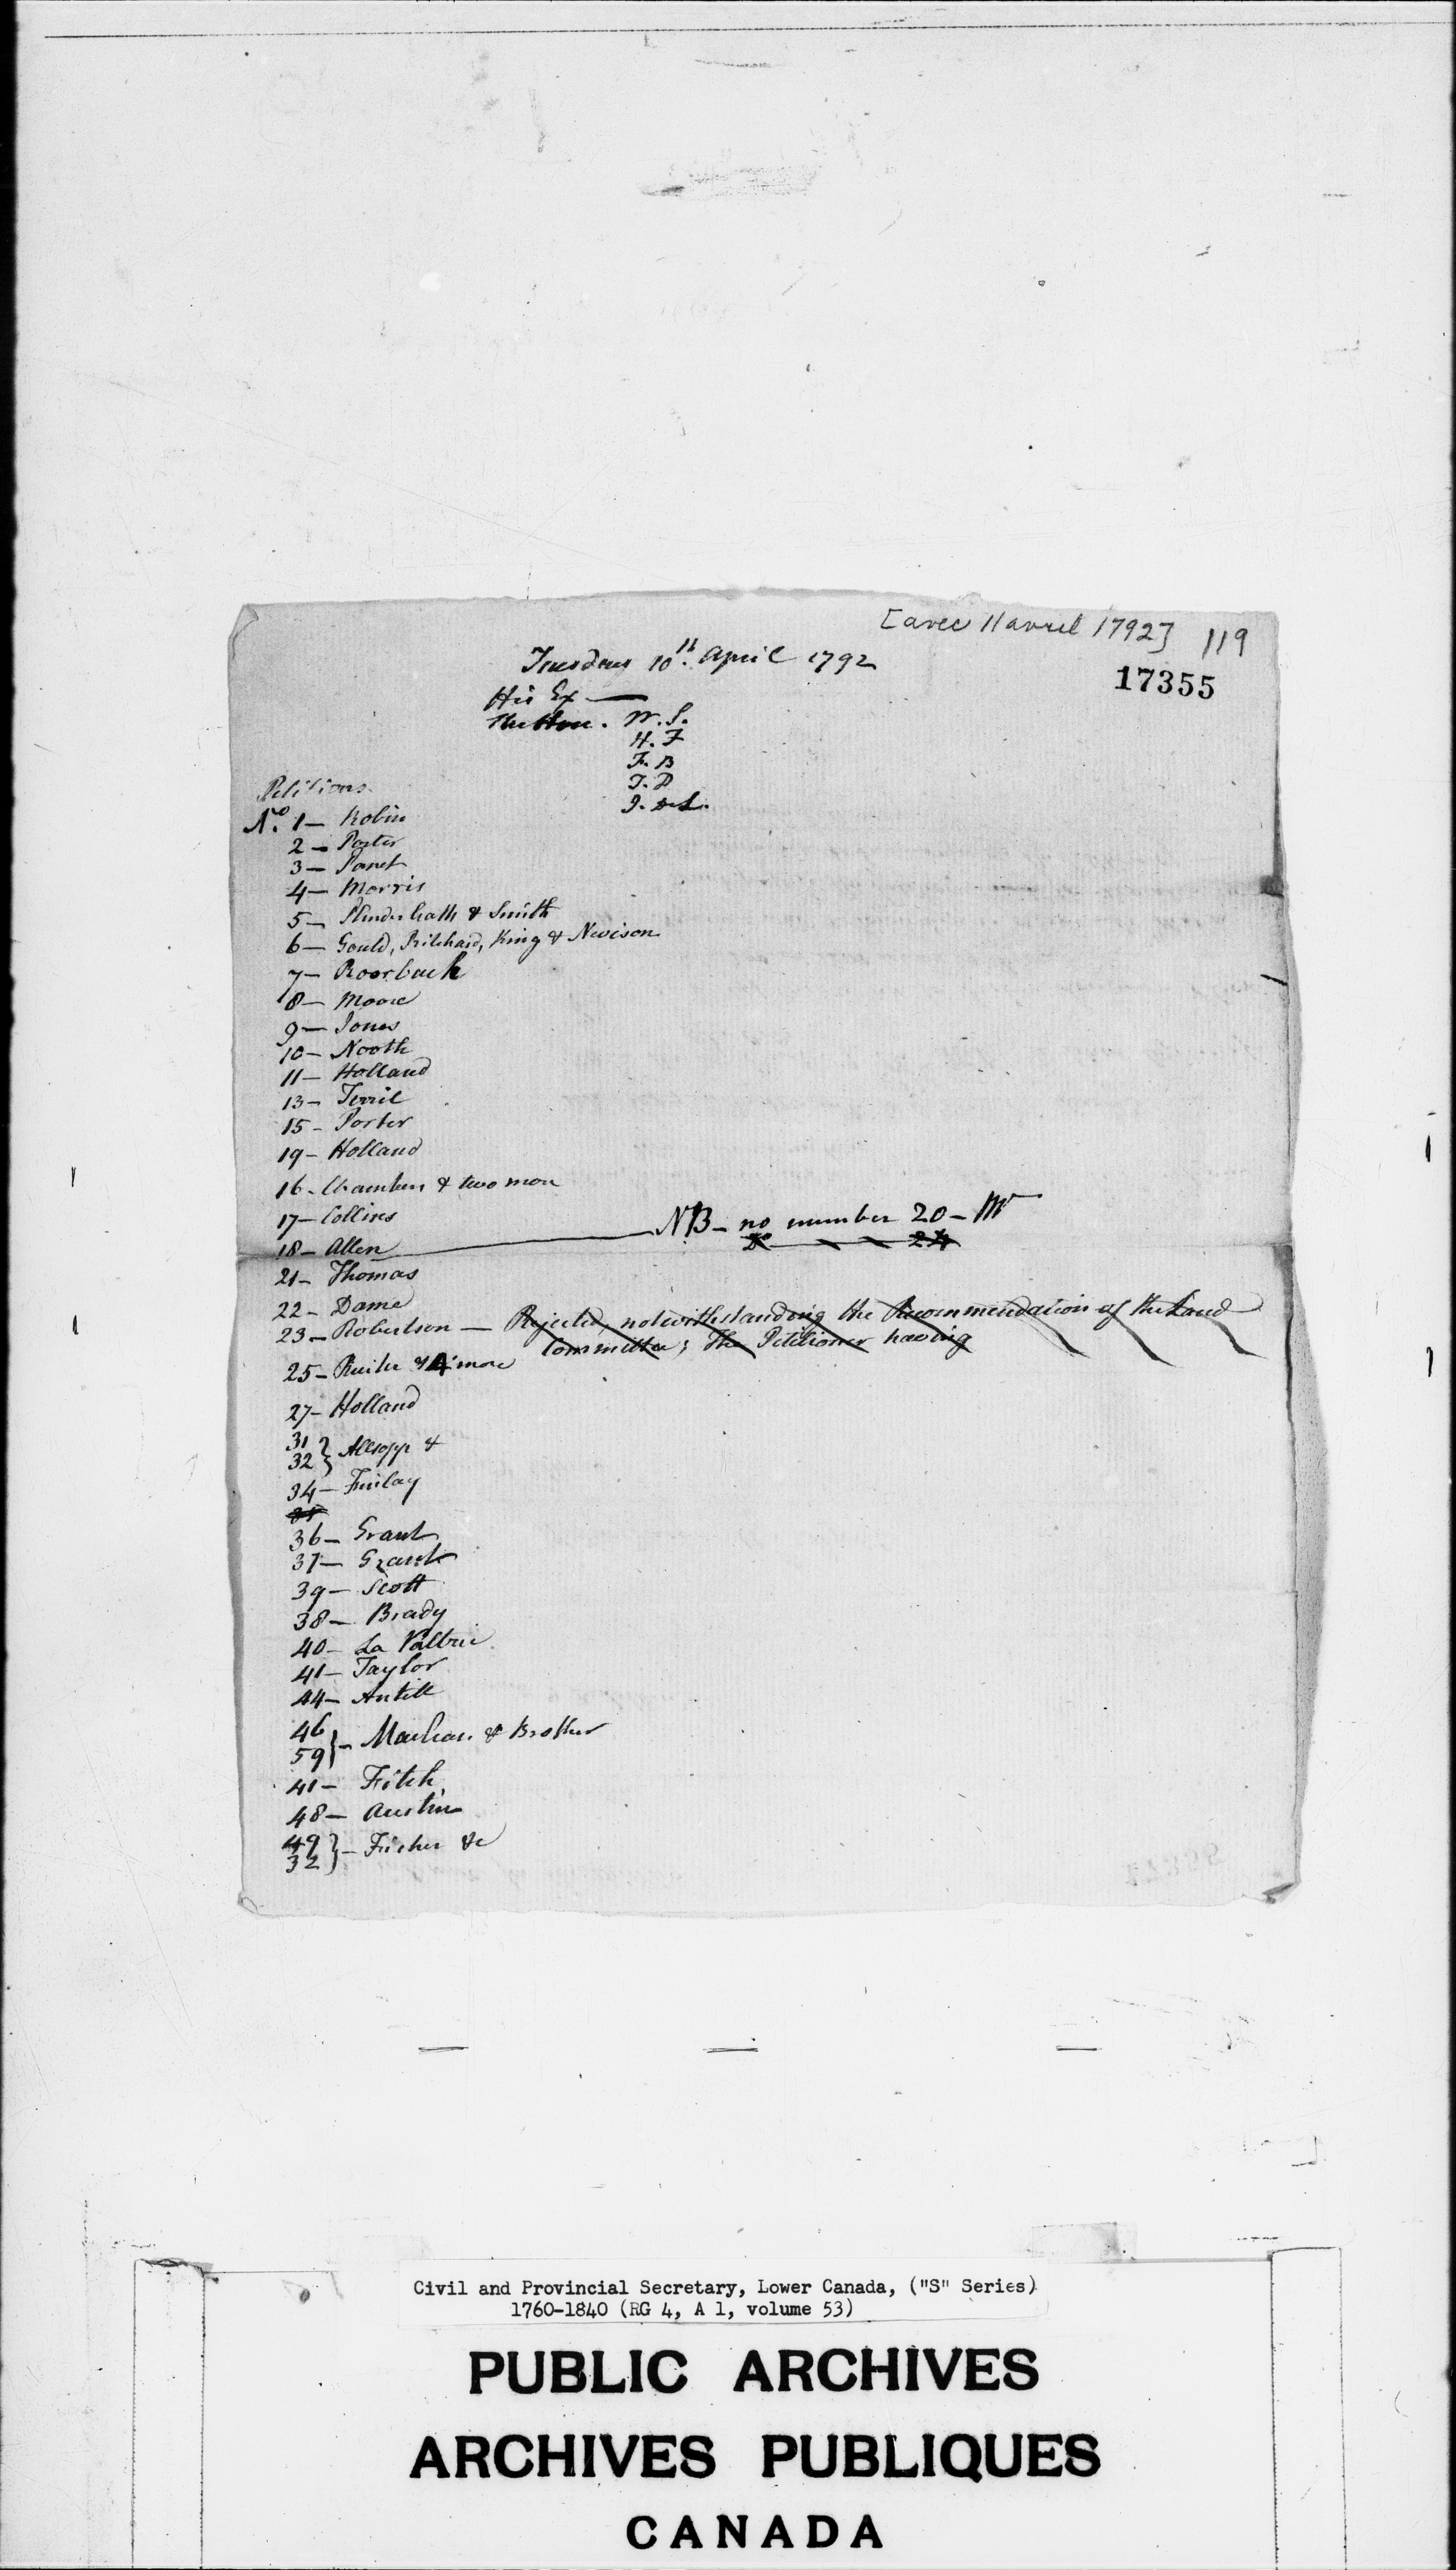 [avec 11 avril 1792] 119
17355
Tuesday 10th. April 1792
His Ex —
The Hon. W. S.
H. F
F. B
T. P
J. DeL.
Petitions
No. 1 — Robin
2 — Porter
3 — Panet
4 — Morris
5 — Plenderleath & Smith
6 — Gould, Pritchard, King & Nevison
7 — Roorback
8 — Moore
9 — Jones
10 — Nooth
11 — Holland
13 — Terril
15 - Porter
19 - Holland
16 - Chambers & two more
17 — Collins
18 — Allen — NB — no number 20 — M
Do — — — 24
21 — Thomas
22 — Dame
23 — Robertson — Rejected, notwithstanding the Recommendation of the Land
Committee; The Petitioner having
25 — Ruiter & 4 more
27 — Holland
31
32 } Allsopp &
34 — Finlay
36 — Grant
37 — Grant
39 — Scott
38 — Brady
40 — La Valtrie
41 — Taylor
44 — Antill
46
59 } — & Brother
41 — Fitch
48 — Austin
49
32 } — &c
Civil and Provincial Secretary, Lower Canada, ("S" Series)
1760-1840 (RG 4, A 1, volume 53)
PUBLIC ARCHIVES
ARCHIVES PUBLIQUES
CANADA